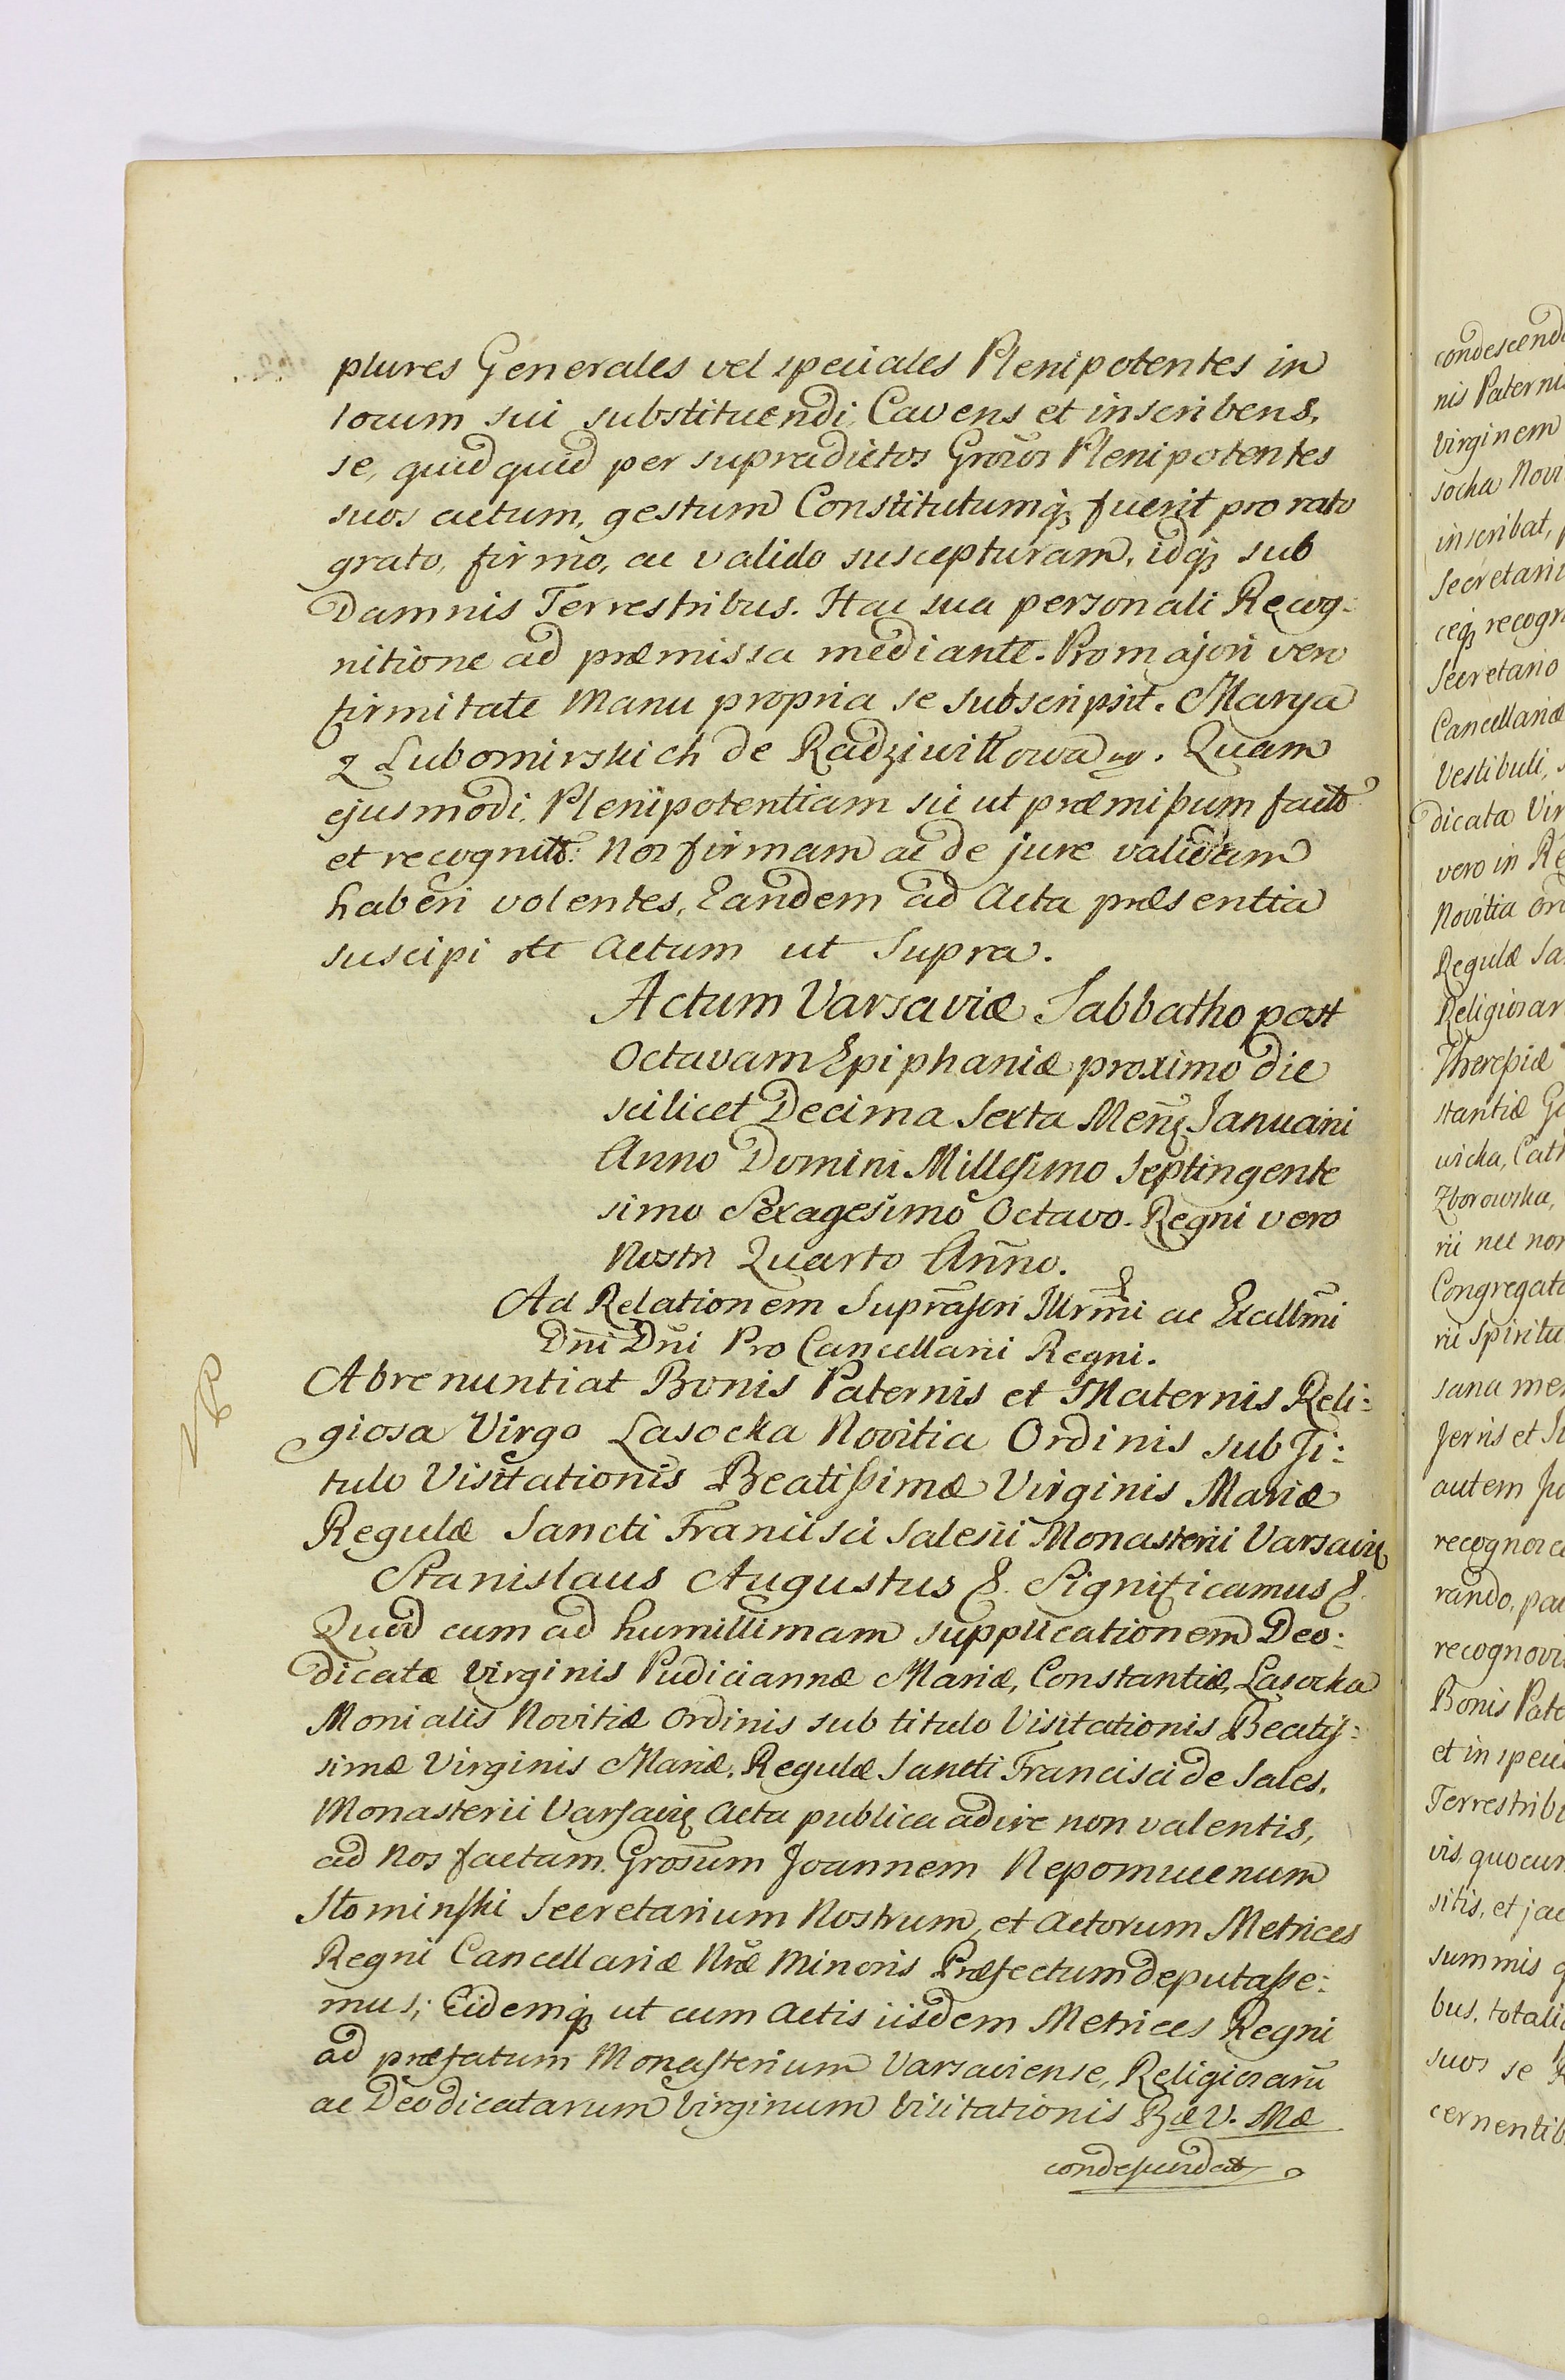 plures Generales vel speciales Plenipotentes in
locum sui substituendi, Cavens et inscribens,
se, quidquid per supradictos Grosos Plenipotentes
suos actum, gestum Constitutumq₃ fuerit pro rato
grato, firmo, ac valido suscepturam, idq₃ sub
Damnis Terrestribus. Hac sua personali Recog:
nitione ad præmissa mediante. Pro majori vero
firmitate Manu propria se subscripsit. Marya
z Lubomirskich de Radziwiłłowa mp. Quam
ejusmodi Plenipotentiam sic ut præmißum factō
et recognitō: Nos firmam ac de jure validam
haberi volentes, Eandem ad Acta præsentia
suscipi &c Actum ut Supra.
Actum Varsaviæ Sabbatho post
Octavam Epiphaniæ proximo die
scilicet Decima Sexta Menȩ Januarii
Anno Domini Millesimo Septingente
simo Sexagesimo Octavo. Regni vero
Nostri Quarto Anno.
Ad Relationem Suprascri Illrm̄i ac Excellm̄i
Dn̄i Dn̄i Pro Cancellarii Regni.
NB
Abrenuntiat Bonis Paternis et Maternis Reli:
giosa Virgo Lasocka Novitia Ordinis sub Ti:
tulo Visitationis Beatißimæ Virginis Mariæ
Regulæ Sancti Francisci Salesii Monasterii Varsavię
Stanislaus Augustus &. Significamus &.
Quod cum ad humillimam supplicationem Deo:
dicatæ Virginis Pudiciannæ Mariæ, Constantiæ, Lasocka
Monialis Novitiæ Ordinis sub titulo Visitationis Beatis:
simæ Virginis Mariæ, Regulæ Sancti Francisci de Sales,
Monasterii Varsavię Acta publica adire non valentis,
ad Nos factam. Grosum Joannem Nepomucenum
Słominski Secretarium Nostrum, et Actorum Metrices
Regni Cancellariæ Nr̄æ Minoris Præfectum deputaße:
mus; Eidemq₃ ut cum Actis iisdem Metrices Regni
ad præfatum Monasterium Varsaviense, Religiosarū
ac Deodicatarum Virginum Visitationis Bæ V. Mæ
condescendat
condescend
nis Paterni
Virginem
socka Novi
inscribat,
Secretarii
ceq₃ recogn
Secretario
Cancellariæ
Vestibuli,
dicata Vir
vero in Re
Novitia Or
Regulæ Sa
Religiosar
Thereßiæ
stantiæ G
wicka, Cath
Zborowska,
rii nec non
Congregat
rii Spiritu
sana me
ferris et
autem
recognos
rando, pa
recognovi
Bonis Pate
et in speci
Terrestrib
vis, quocun
sitis, et jac
summis
bus, totali
suos se
cernentib